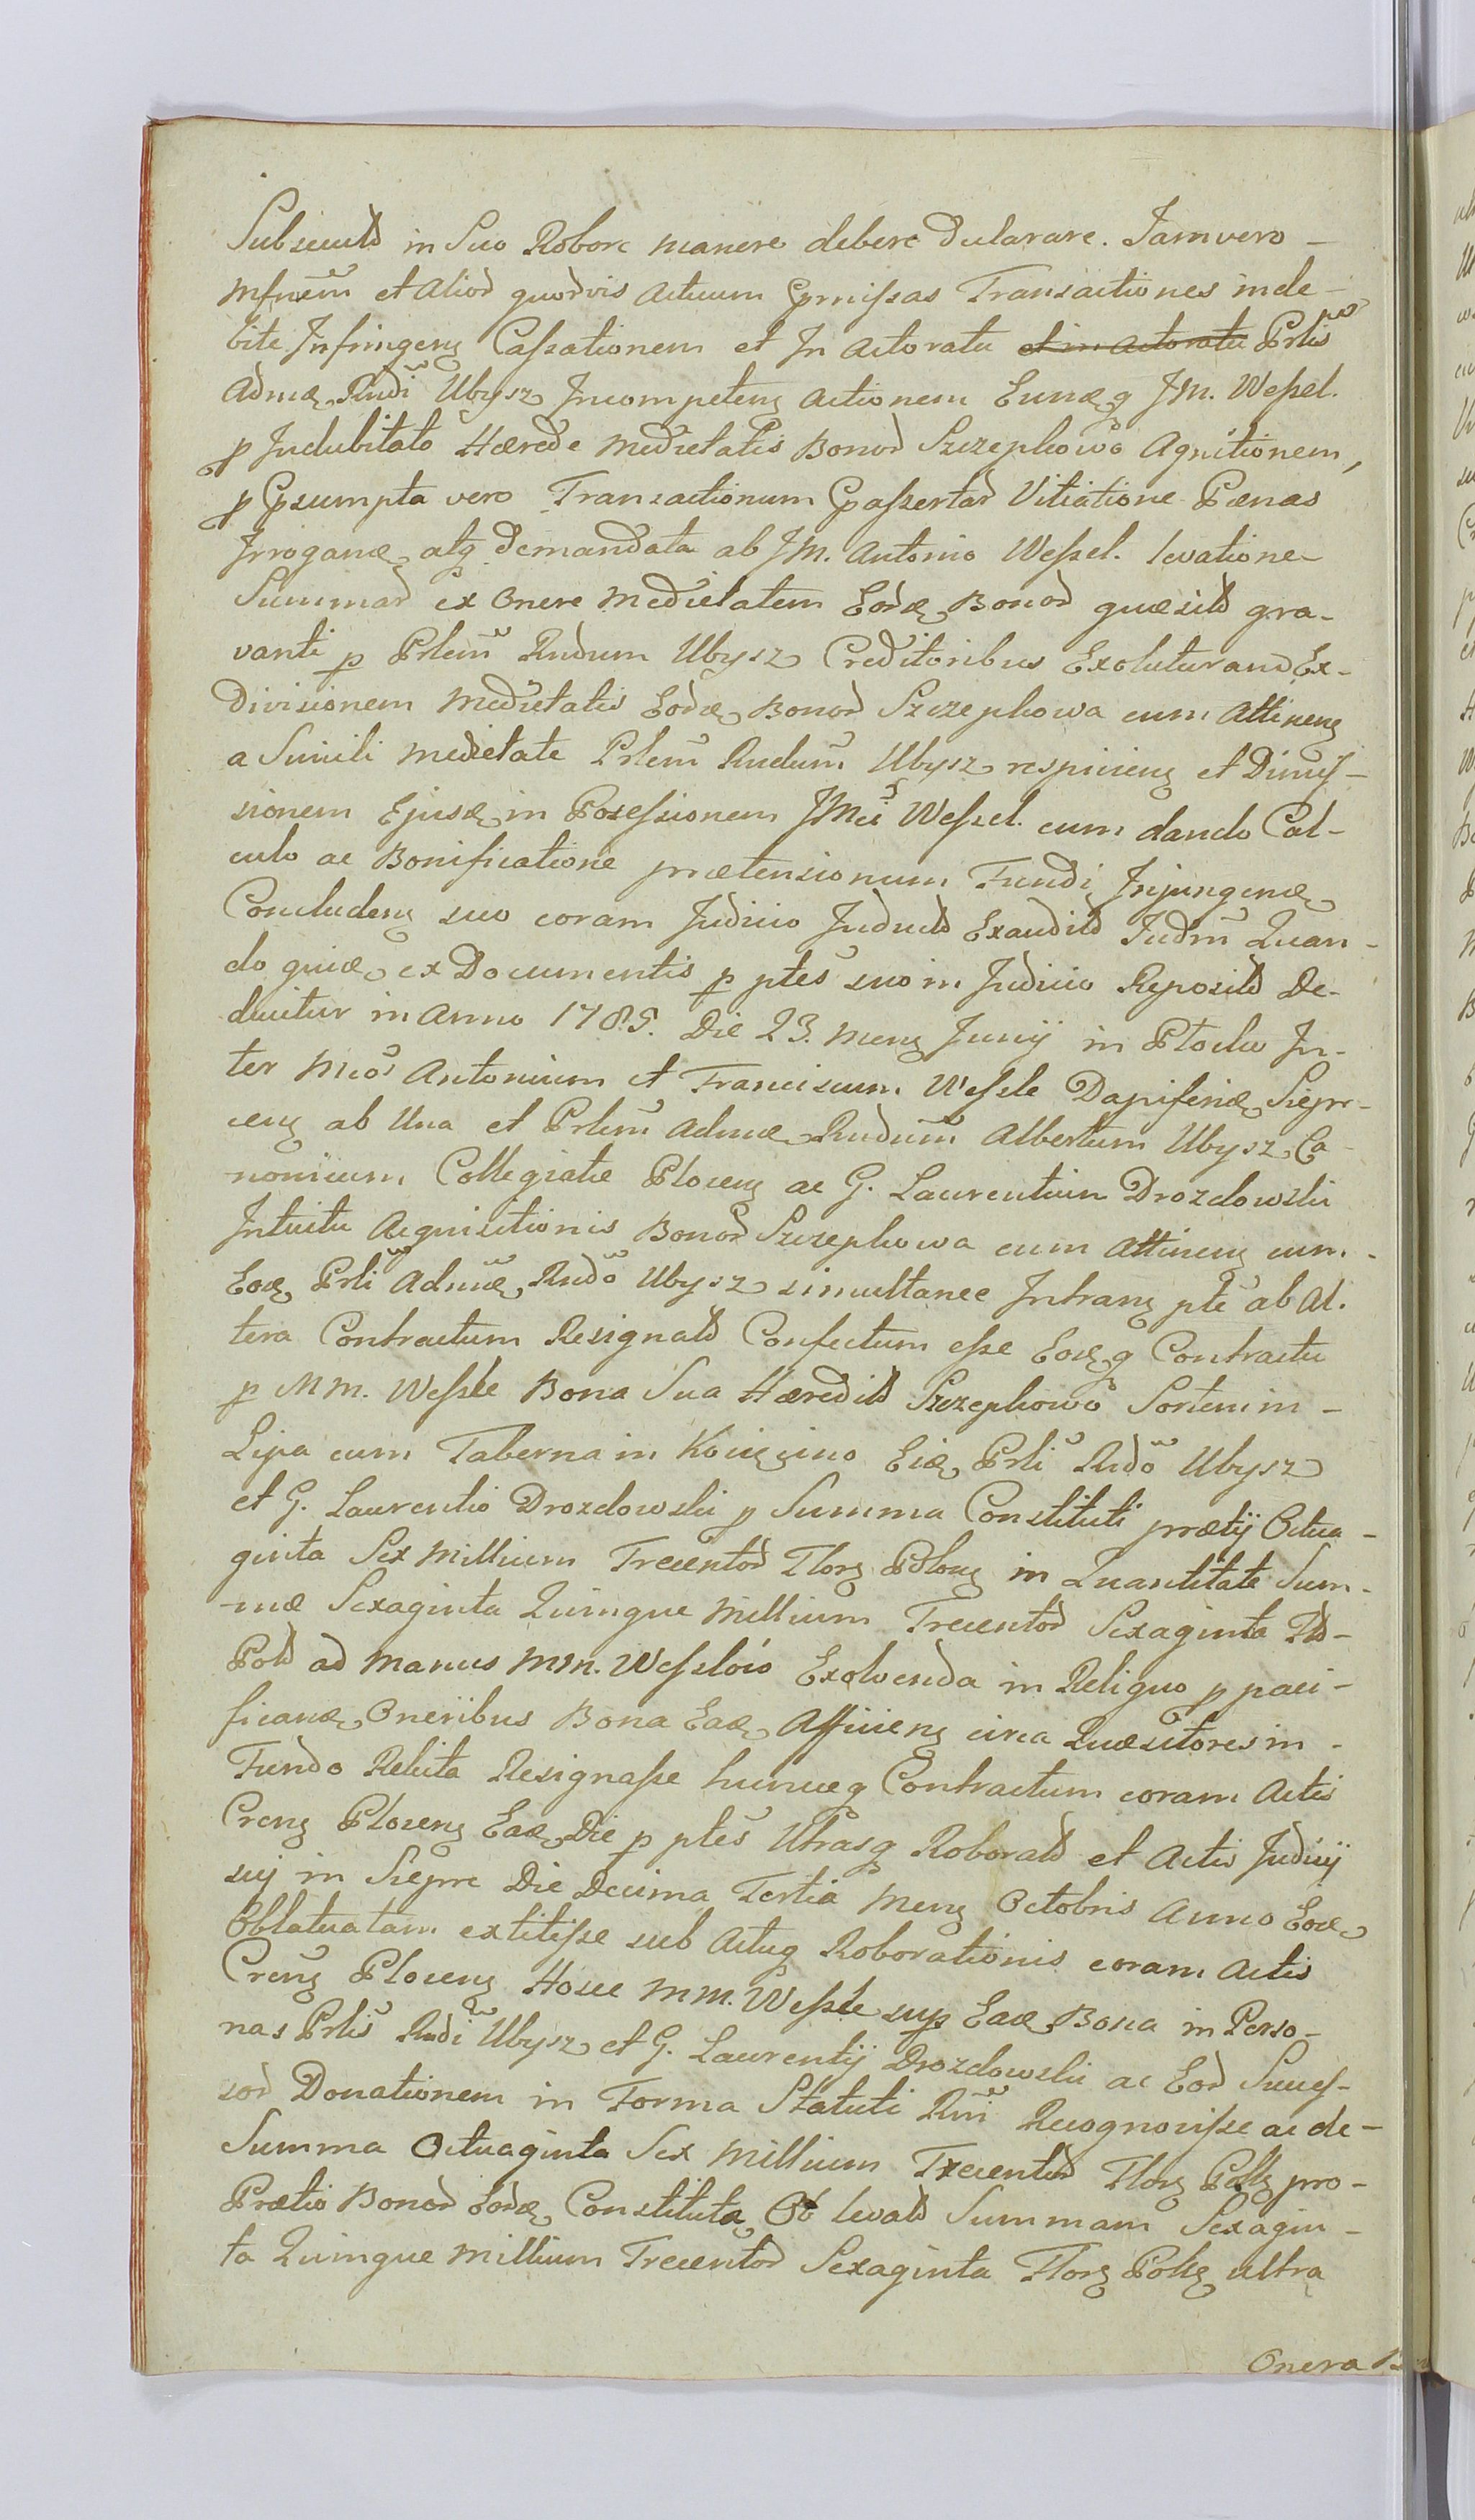 Subsecutd in Suo Robore manere debere Dularare. Jam vero –
Mfnem̃ et aliod quodvis actuum Ꝓmißas Transactiones inde–
bite Infringenꝫ Caßationem et In actoratu et in actoratu Prlis
Admæ Rndi Ubysz Incompetenꝫ actionem Eunæq JM. Weßel.
ꝑ Indubitato Hærede Medietatis Bonod Szczepkowo Agnitionem,
ꝑ Ꝓsumpta vero Transactionum Ꝓaßertad Vitiatione Pænas
Irroganæ atq demandata ab JM. Antonio Weßel. levatione
Summad ex Onere Medietatem Eodæ Bonod quæsitd gra–
vanti ꝑ Prlem̃ Rndum Ubysz Creditoribus Exoluturand Ex–
Divisionem Medietatis Eodæ Bonod Szczepkowa cum Attinenꝫ
a Simili Medietate Prlem̃ Rndum̃ Ubysz respicienꝫ et Dimiß–
sionem Ejusæ in Poseßionem JMci Weßel. cum dando Cal–
culo ac Bonificatione prætensionum Fundi Injungenæ
Concludenꝫ suo coram Judicio Inductd Exauditd Judm̃ Quan–
do quiæ ex Documentis ꝑ ptes suo in Judicio Repositd De–
ducitur in Anno 1785. Die 23. Menꝫ Junij in Plocko In–
ter Mcos Antonium et Franciscum Weßle Dapiferiæ Sierpr–
cenꝫ ab Una et Prlem̃ Admæ Rndum̃ Albertum Ubysz Ca–
nonicum Collegiatæ Plocenꝫ ac G. Laurentium Drozdowski
Intuitu Acquisitionis Bonod Szczepkowa cum Attinenꝫ cum –
Eoæ Prli Admæ Rndo Ubysz simultanee Intranꝫ pte ab Al.
tera Contractum Resignatd Confectum eße Eoæq Contractu
ꝑ MM. Weßle Bona Sua Hæreditd Szczepkowo Sortem in –
Lipa cum Taberna in Kocięcino Eiæ Prli Rndo Ubysz
et G. Laurentio Drozdowski ꝑ Summa Constituti prætij Octua–
ginta Sex Millium Trecentod Florꝫ Polonꝫ in Quantitate Sum–
mæ Sexaginta Quinque Millium Trecentod Sexaginta Fld–
Pold ad Manus MM. Weßlów Exolvenda in Reliquo ꝑ paci–
ficanæ Oneribus Bona Eaæ Afficienꝫ circa Quæsitores in –
Fundo Relicta Resignaße huncæq Contractum coram Actis
Crenꝫ Plocenꝫ Eaæ Die ꝑ ptes Utrasq Roboratd et Actis Judicij
sui in Sierpc Die Decima Tertia Menꝫ Octobris Anno Eoæ
Oblatuatam extitiße sub Actuq Roborationis coram Actis
Crenꝫ Plocenꝫ Hosce MM. Weßle sup Eaæ Bona in Perso–
nas Prlis Rndi Ubysz et G. Laurentij Drozdowski ac Eod Succeß–
sod Donationem in Forma Statuti Rni Recognoviße ac de –
Summa Octuaginta Sex Millium Trecentod Florꝫ Polꝫ pro –
Prætio Bonod Eodæ Constituta Ob levatd Summam Sexagin–
ta Quinque Millium Trecentod Sexaginta Florꝫ Polꝫ ultra
Onera